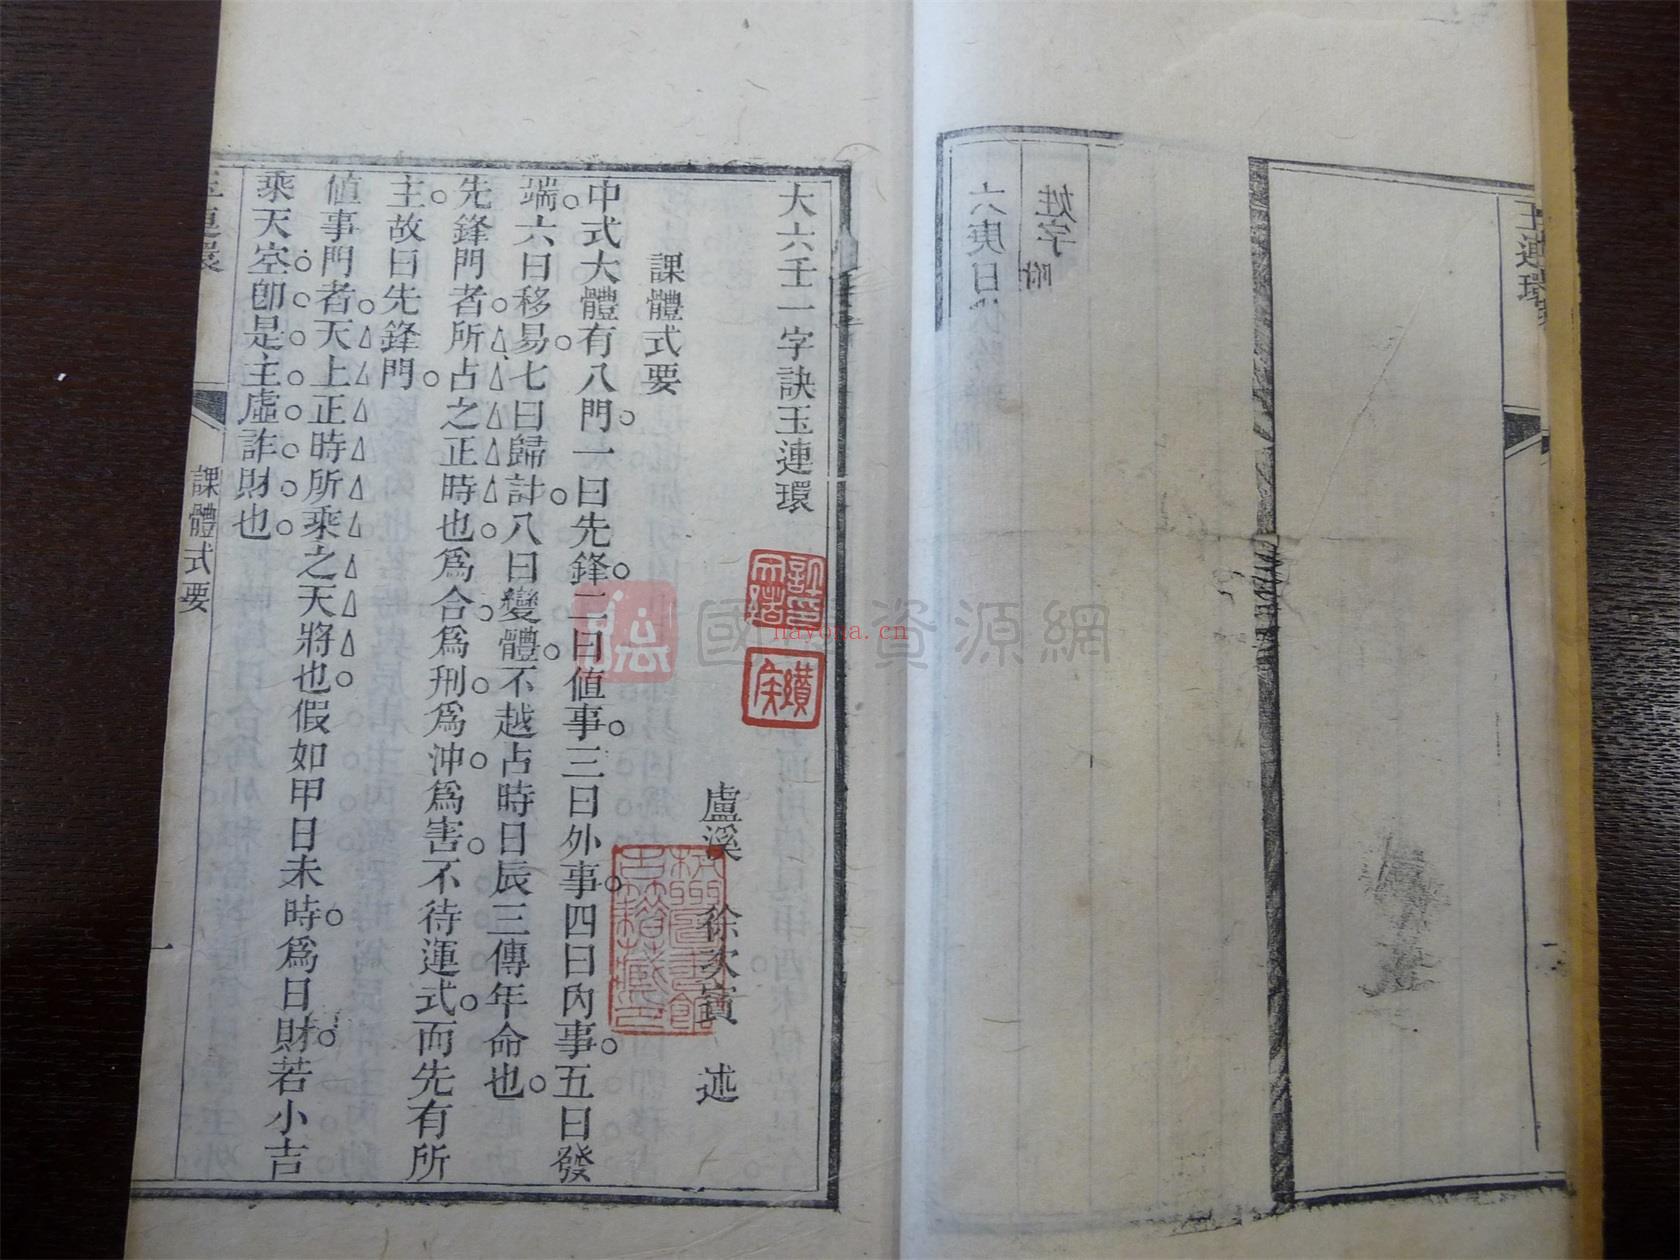 大六壬一字訣玉連環
盧溪 徐次賓 述
課體式要
中式大體有八門一曰先鋒二曰値事三曰外事四曰內事五曰發
端六曰移易七曰歸計八曰變體不越占時日辰三傳年命也
先鋒門者所占之正時也爲合爲刑爲沖爲害不待運式而先有所
主故曰先鋒門
値事門者天上正時所乘之天將也假如甲日未時爲日財若小吉
乘天空卽是主虛詐財也
課體式要
一
玉連環
姓字附
六庚日
國學資源網
nayona.cn